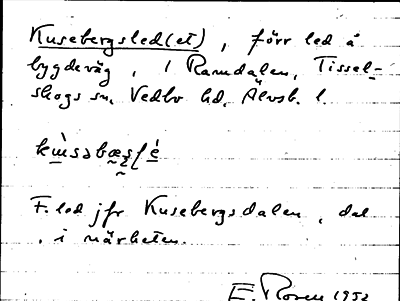 Kusebergsled(et), förr led å
bygdeväg, i Ramdalen, Tissel-
skogs sn, Vedbo hd, Älvsb. l.
F. led jfr Kusebergsdalen, dal
i närheten.
E. Rosen 1952